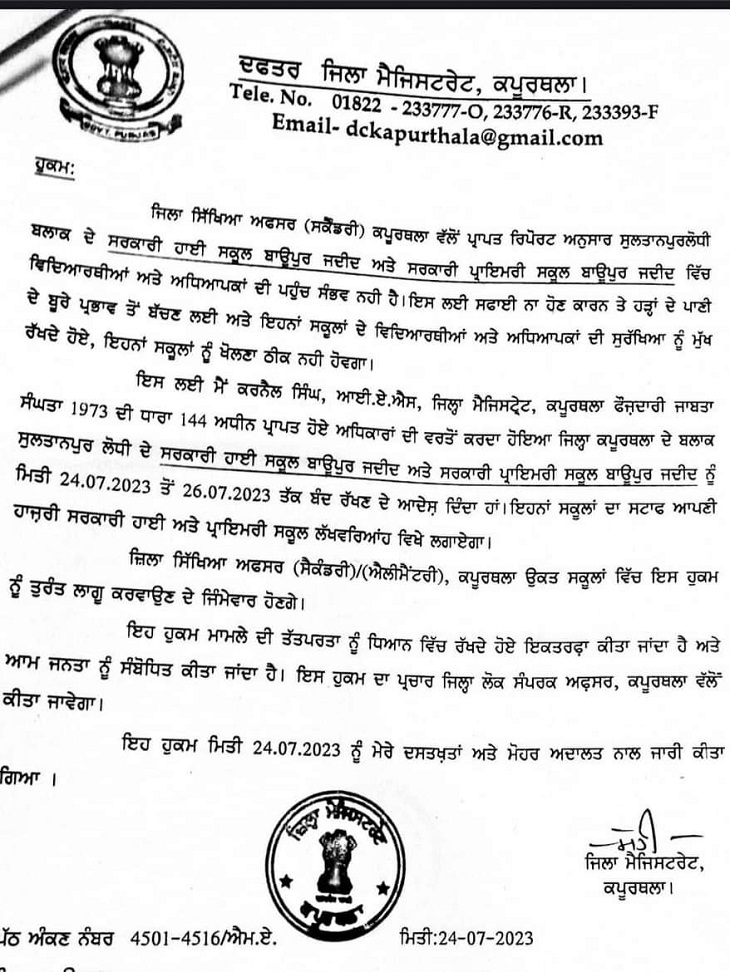 GOVT. PUNJAB
ਦਫਤਰ ਜਿਲਾ ਮੈਜਿਸਟਰੇਟ, ਕਪੂਰਥਲਾ।
Tele. No. 01822 - 233777-O, 233776-R, 233393-F
Email- dckapurthala@gmail.com
ਹੁਕਮ:
ਜਿਲਾ ਸਿੱਖਿਆ ਅਫਸਰ (ਸਕੈਂਡਰੀ) ਕਪੂਰਥਲਾ ਵੱਲੋਂ ਪ੍ਰਾਪਤ ਰਿਪੋਰਟ ਅਨੁਸਾਰ ਸੁਲਤਾਨਪੁਰਲੋਧੀ
ਬਲਾਕ ਦੇ ਸਰਕਾਰੀ ਹਾਈ ਸਕੂਲ ਬਾਊਪੁਰ ਜਦੀਦ ਅਤੇ ਸਰਕਾਰੀ ਪ੍ਰਾਇਮਰੀ ਸਕੂਲ ਬਾਊਪੁਰ ਜਦੀਦ ਵਿੱਚ
ਵਿਦਿਆਰਥੀਆਂ ਅਤੇ ਅਧਿਆਪਕਾਂ ਦੀ ਪਹੁੰਚ ਸੰਭਵ ਨਹੀ ਹੈ।ਇਸ ਲਈ ਸਫਾਈ ਨਾ ਹੋਣ ਕਾਰਨ ਤੇ ਹੜ੍ਹਾਂ ਦੇ ਪਾਣੀ
ਦੇ ਬੂਰੇ ਪ੍ਰਭਾਵ ਤੋਂ ਬੱਚਣ ਲਈ ਅਤੇ ਇਹਨਾਂ ਸਕੂਲਾਂ ਦੇ ਵਿਦਿਆਰਥੀਆਂ ਅਤੇ ਅਧਿਆਪਕਾਂ ਦੀ ਸੁਰੱਖਿਆ ਨੂੰ ਮੁੱਖ
ਰੱਖਦੇ ਹੋਏ, ਇਹਨਾਂ ਸਕੂਲਾਂ ਨੂੰ ਖੋਲਣਾ ਠੀਕ ਨਹੀ ਹੋਵਗਾ।
ਇਸ ਲਈ ਮੈਂ ਕਰਨੈਲ ਸਿੰਘ, ਆਈ.ਏ.ਐਸ, ਜਿਲ੍ਹਾ ਮੈਜਿਸਟ੍ਰੇਟ, ਕਪੂਰਥਲਾ ਫੌਜ਼ਦਾਰੀ ਜਾਬਤਾ
ਸੰਘਤਾ 1973 ਦੀ ਧਾਰਾ 144 ਅਧੀਨ ਪ੍ਰਾਪਤ ਹੋਏ ਅਧਿਕਾਰਾਂ ਦੀ ਵਰਤੋਂ ਕਰਦਾ ਹੋਇਆ ਜਿਲ੍ਹਾ ਕਪੂਰਥਲਾ ਦੇ ਬਲਾਕ
ਸੁਲਤਾਨਪੁਰ ਲੋਧੀ ਦੇ ਸਰਕਾਰੀ ਹਾਈ ਸਕੂਲ ਬਾਊਪੁਰ ਜਦੀਦ ਅਤੇ ਸਰਕਾਰੀ ਪ੍ਰਾਇਮਰੀ ਸਕੂਲ ਬਾਊਪੁਰ ਜਦੀਦ ਨੂੰ
ਮਿਤੀ 24.07.2023 ਤੋਂ 26.07.2023 ਤੱਕ ਬੰਦ ਰੱਖਣ ਦੇ ਆਦੇਸ਼ ਦਿੰਦਾ ਹਾਂ।ਇਹਨਾਂ ਸਕੂਲਾਂ ਦਾ ਸਟਾਫ ਆਪਣੀ
ਹਾਜ਼ਰੀ ਸਰਕਾਰੀ ਹਾਈ ਅਤੇ ਪ੍ਰਾਇਮਰੀ ਸਕੂਲ ਲੱਖਵਰਿਆਂਹ ਵਿਖੇ ਲਗਾਏਗਾ।
ਜ਼ਿਲਾ ਸਿੱਖਿਆ ਅਫਸਰ (ਸੈਕੰਡਰੀ)/(ਐਲੀਮੈਂਟਰੀ), ਕਪੂਰਥਲਾ ਉਕਤ ਸਕੂਲਾਂ ਵਿੱਚ ਇਸ ਹੁਕਮ
ਨੂੰ ਤੁਰੰਤ ਲਾਗੂ ਕਰਵਾਉਣ ਦੇ ਜਿੰਮੇਵਾਰ ਹੋਣਗੇ।
ਇਹ ਹੁਕਮ ਮਾਮਲੇ ਦੀ ਤੱਤਪਰਤਾ ਨੂੰ ਧਿਆਨ ਵਿੱਚ ਰੱਖਦੇ ਹੋਏ ਇਕਤਰਫ਼ਾ ਕੀਤਾ ਜਾਂਦਾ ਹੈ ਅਤੇ
ਆਮ ਜਨਤਾ ਨੂੰ ਸੰਬੋਧਿਤ ਕੀਤਾ ਜਾਂਦਾ ਹੈ। ਇਸ ਹੁਕਮ ਦਾ ਪ੍ਰਚਾਰ ਜਿਲ੍ਹਾ ਲੋਕ ਸੰਪਰਕ ਅਫ਼ਸਰ, ਕਪੂਰਥਲਾ ਵੱਲੋਂ
ਕੀਤਾ ਜਾਵੇਗਾ।
ਇਹ ਹੁਕਮ ਮਿਤੀ 24.07.2023 ਨੂੰ ਮੇਰੇ ਦਸਤਖ਼ਤਾਂ ਅਤੇ ਮੋਹਰ ਅਦਾਲਤ ਨਾਲ ਜਾਰੀ ਕੀਤਾ
ਗਿਆ ।
ਜਿਲ੍ਹਾ ਮੈਜਿਸਟਰੇਟ
ਕਪੂਰਥਲਾ
ਸਹੀ
ਜਿਲਾ ਮੈਜਿਸਟਰੇਟ,
ਕਪੂਰਥਲਾ।
ਪੱਠ ਅੰਕਣ ਨੰਬਰ 4501-4516/ਐਮ.ਏ. ਮਿਤੀ:24-07-2023